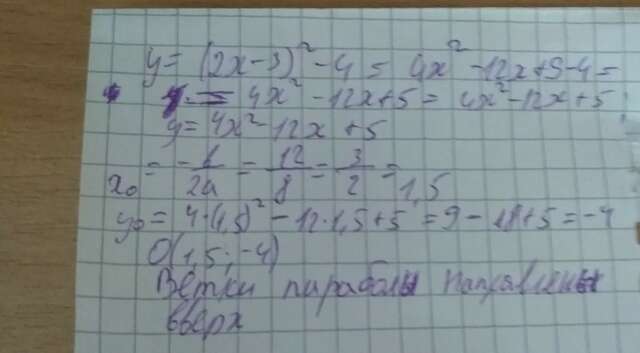 y = (2x-3)² - 4 = 4x² - 12x + 9 - 4 =
= 4x² - 12x + 5 = 4x² - 12x + 5
y = 4x² - 12x + 5
x₀ = -b/2a = 12/8 = 3/2 = 1,5
y₀ = 4·(1,5)² - 12·1,5 + 5 = 9 - 18 + 5 = -4
O(1,5; -4)
Ветки параболы направлены
вверх